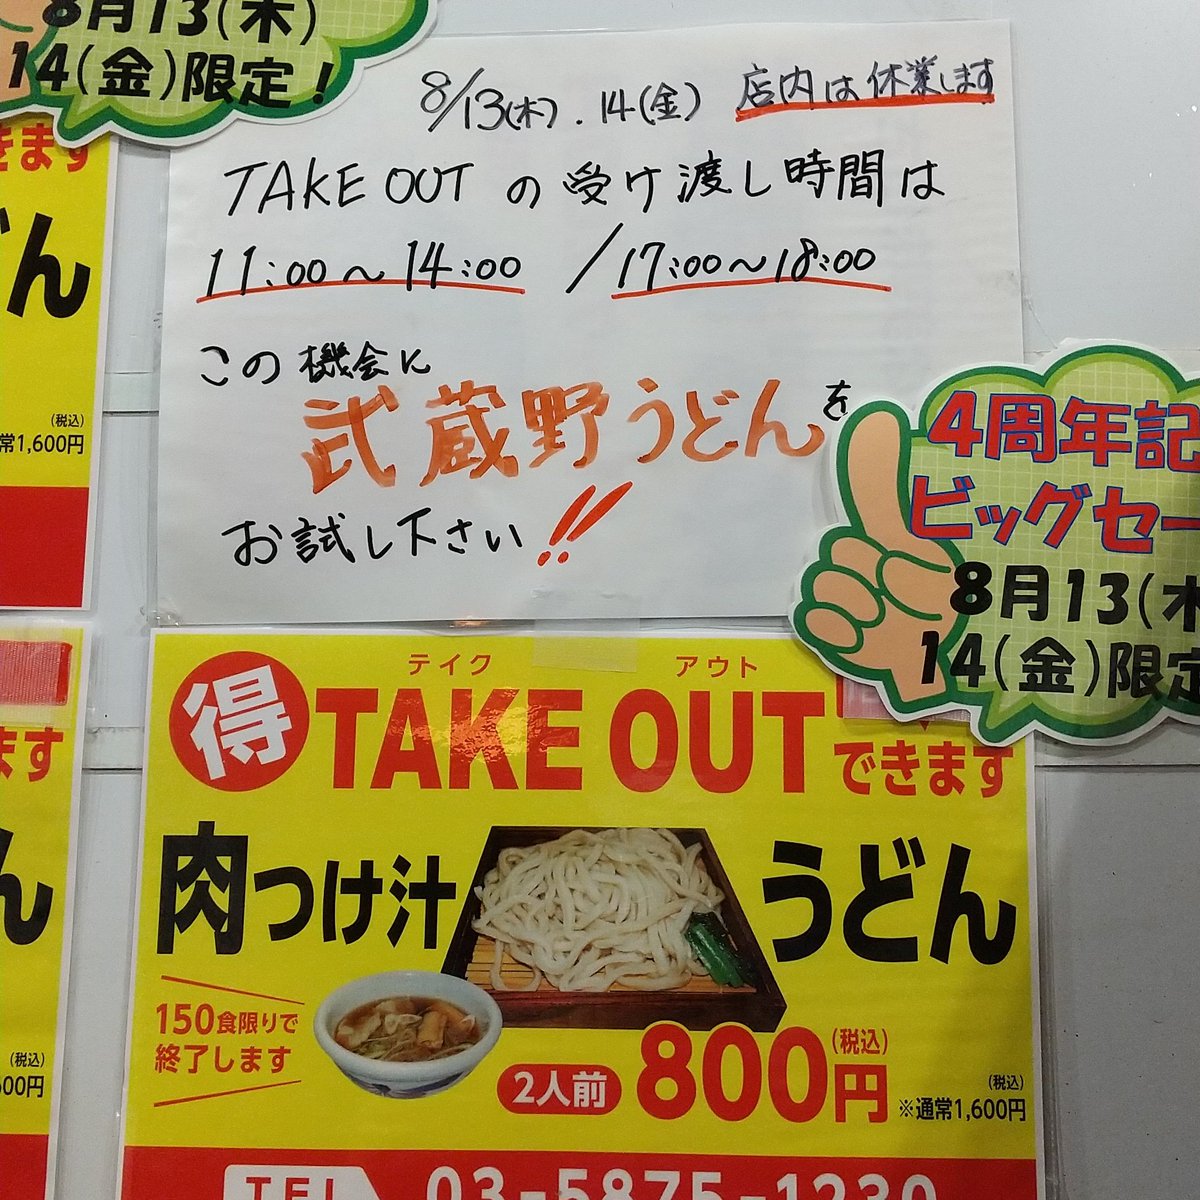 8月13(木)
14(金)限定！
8/13(木).14(金) 店内は休業します
TAKE OUT の受け渡し時間は
11:00〜14:00 /17:00〜18:00
この機会に
武蔵野うどんを
お試し下さい!!
4周年記
ビッグセー
8月13(木
14(金)限定
きます
どん
(税込)
常1,600円
得 TAKE OUT できます
テイク アウト
肉つけ汁 うどん
150食限りで
終了します
2人前 800円 (税込)
(税込)
※通常1,600円
TEL 03-5875-1230
ます
ん
(税込)
600円